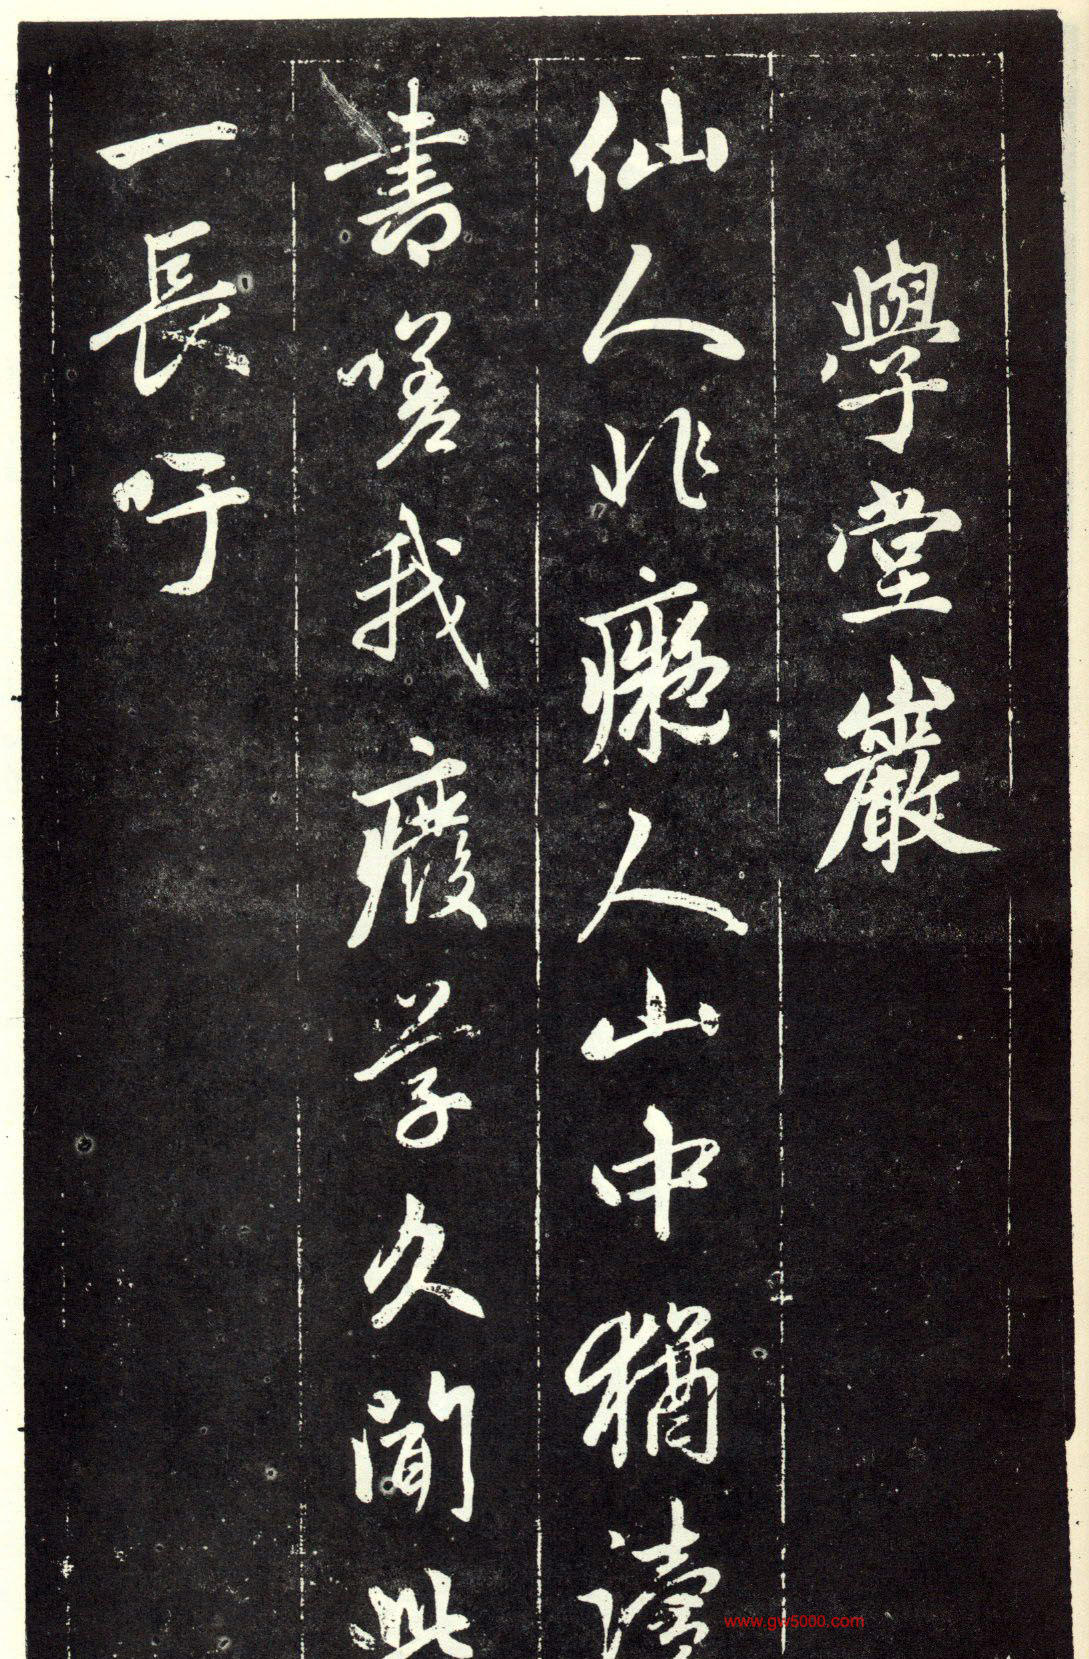 學堂巖
仙人非癡人山中猶讀
書嗟我廢学久聞此
一長吁
www.gw5000.com